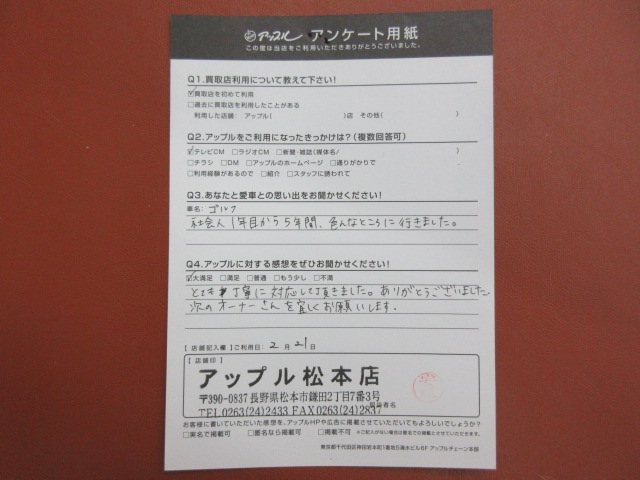 アップル アンケート用紙
この度は当店をご利用いただきありがとうございました。
Q1.買取店利用について教えて下さい!
☑買取店を初めて利用
□過去に買取店を利用したことがある
利用した店舗: アップル( )店 その他( )
Q2.アップルをご利用になったきっかけは?(複数回答可)
☑テレビCM □ラジオCM □新聞・雑誌(媒体名/ )
□チラシ □DM □アップルのホームページ □通りがかりで
□利用経験があるので □紹介 □スタッフに誘われて
Q3.あなたと愛車との思い出をお聞かせください!
車名: ゴルフ
社会人1年目から5年間、色んなところに行きました。
Q4.アップルに対する感想をぜひお聞かせください!
☑大満足 □満足 □普通 □もう少し □不満
とても丁寧に対応して頂きました。ありがとうございました。
次のオーナーさんを宜しくお願いします。
【店舗記入欄】ご利用日: 2月21日
【店舗印】
アップル松本店
〒390-0837 長野県松本市鎌田2丁目7番3号
TEL 0263(24)2433 FAX 0263(24)2837
担当者名
お客様に書いていただいた感想を、アップルHPや広告に掲載させていただいてもよろしいでしょうか?
□実名で掲載可 □匿名なら掲載可 □掲載不可 ※ご記入がない場合は匿名での掲載とさせていただきます。
東京都千代田区神田岩本町1番地5清水ビル6F アップルチェーン本部